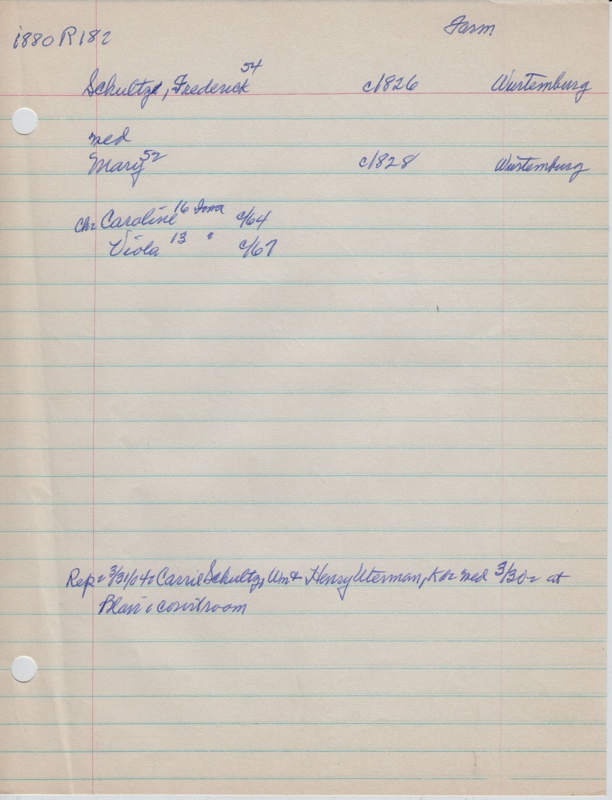 1880 R 182
Farm
Schultze, Frederick 54 c/1826 Wurtemburg
med
Mary 52 c/1828 Wurtemburg
ch: Caroline 16 Iowa c/64
Viola 13 " c/67
Rep: 3/31/04: Carrie Schultz, & Henry Uterman, med 3/30: at
Blair: courtroom